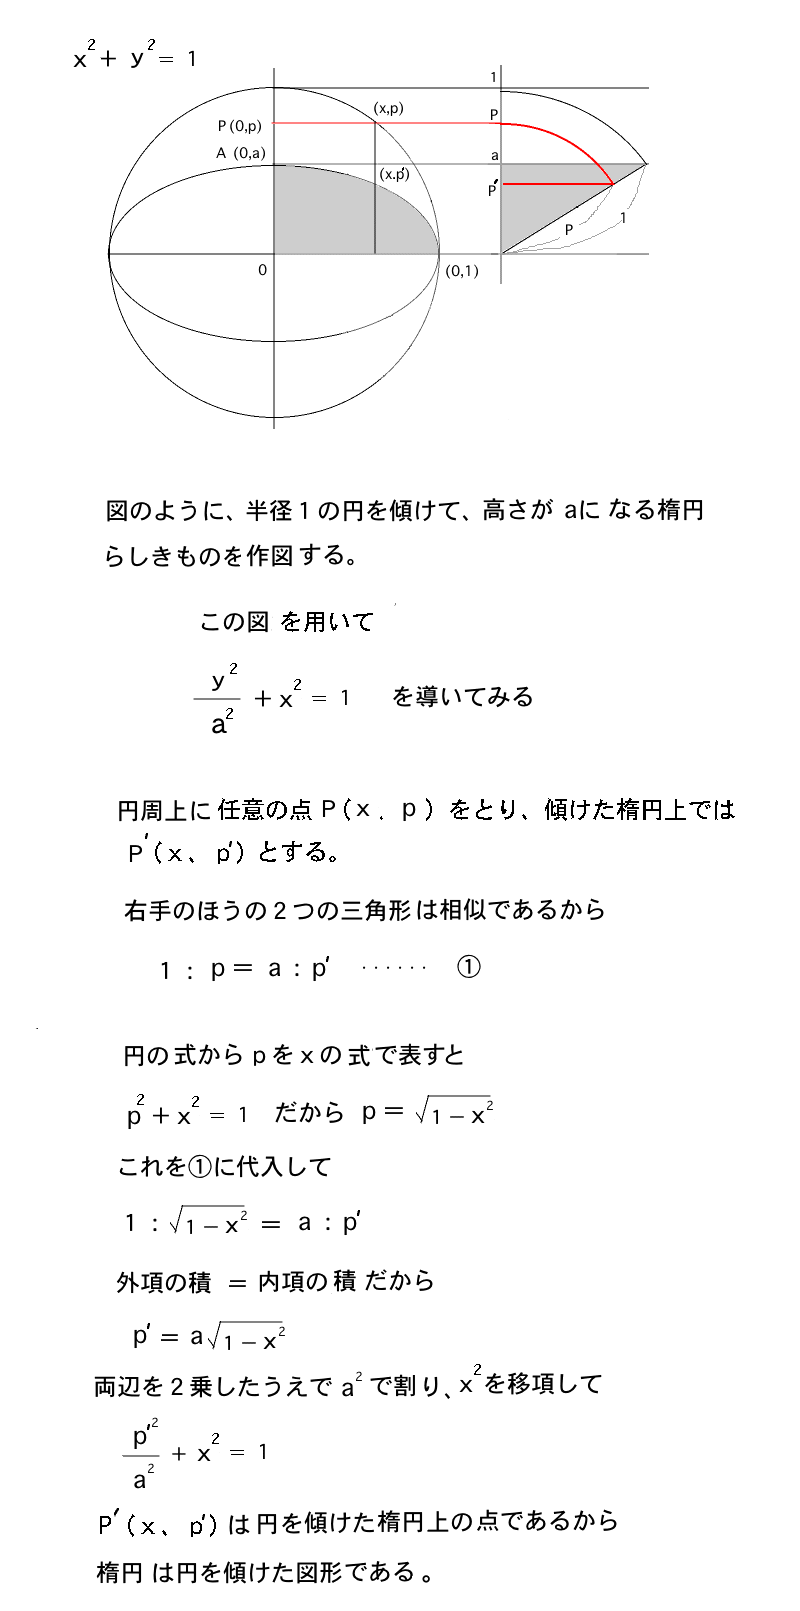 x² + y² = 1
1
(x,p)
P (0,p)
P
A (0,a)
a
(x.p′)
P′
1
P
0
(0,1)
図のように、半径１の円を傾けて、高さが aに なる楕円
らしきものを作図する。
この図 を用いて
y²/a² + x² = 1 を導いてみる
円周上に任意の点 P ( x . p ) をとり、傾けた楕円上では
P′( x 、 p′) とする。
右手のほうの２つの三角形は相似であるから
1 : p = a : p′ ・・・・・・ ①
円の式から p を x の 式で表すと
p² + x² = 1 だから p = √1 − x²
これを①に代入して
1 : √1 − x² = a : p′
外項の積 = 内項の積 だから
p′ = a√1 − x²
両辺を２乗したうえで a² で割り、x² を移項して
p′²/a² + x² = 1
P′( x 、 p′) は 円を傾けた楕円上の点であるから
楕円 は円を傾けた図形である 。